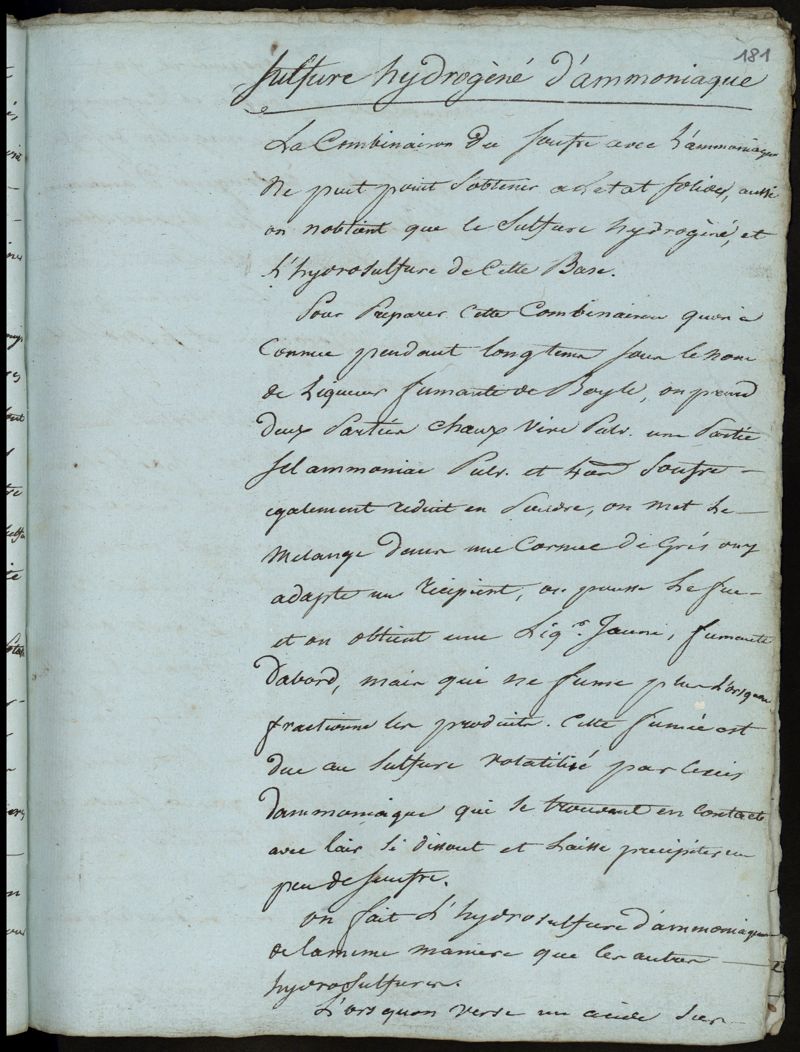 181
Sulfure hydrogèné d'ammoniaque
La Combinaison du soufre avec l'ammoniaque
ne peut point s'obtenir à létat solide, aussi
on nobtient que le Sulfure hydrogèné, et
l'hydrosulfure de Cette Base.
Pour Préparer Cette Combinaison quon a
Connue pendant longtems sous le nom
de Liqueur fumante de Boyle, on prend
deux Parties Chaux Vive Pulv. une Partie
sel ammoniac Pulv. et Soufre
egalement reduit en Poudre, on met Le
Melange dans une Cornue de Grés on y
adapte un récipient, on pousse Le feu
et on obtient une Liqr. Jaune, fumante
D'abord, mais qui ne fume plus L'orsquon
fractionne les produits. Cette fumée est
due au Sulfure volatilisé par
dammoniaque qui se trouvant en contacte
avec lair se dissout et Laisse precipiter un
peu de soufre.
on fait L'hydrosulfure d'ammoniaque
de lameme maniere que les autres
hydrosulfures.
L'orsquon verse un acide Sur